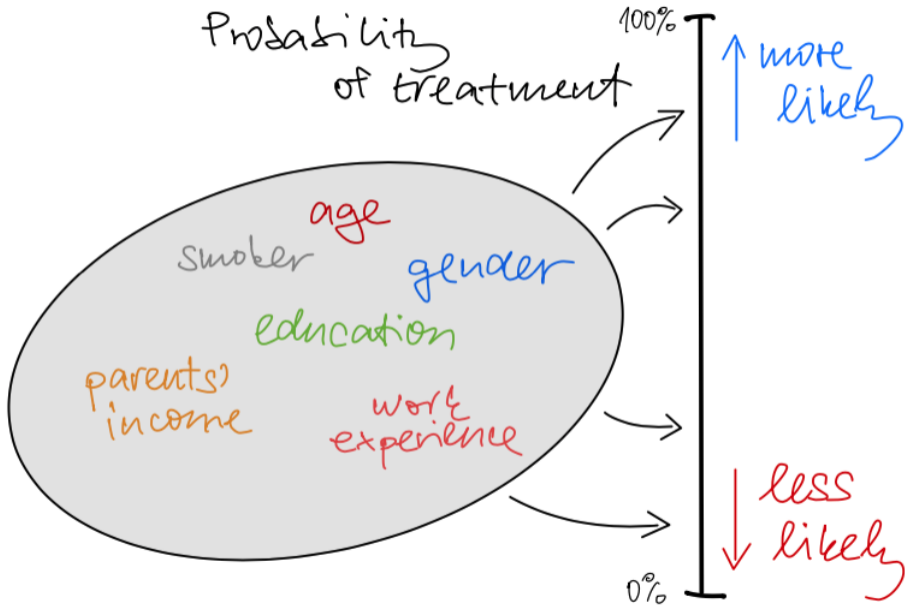 Probability
of treatment
100%
more
likely
age
smoker
gender
education
parents'
income
work
experience
less
likely
0%